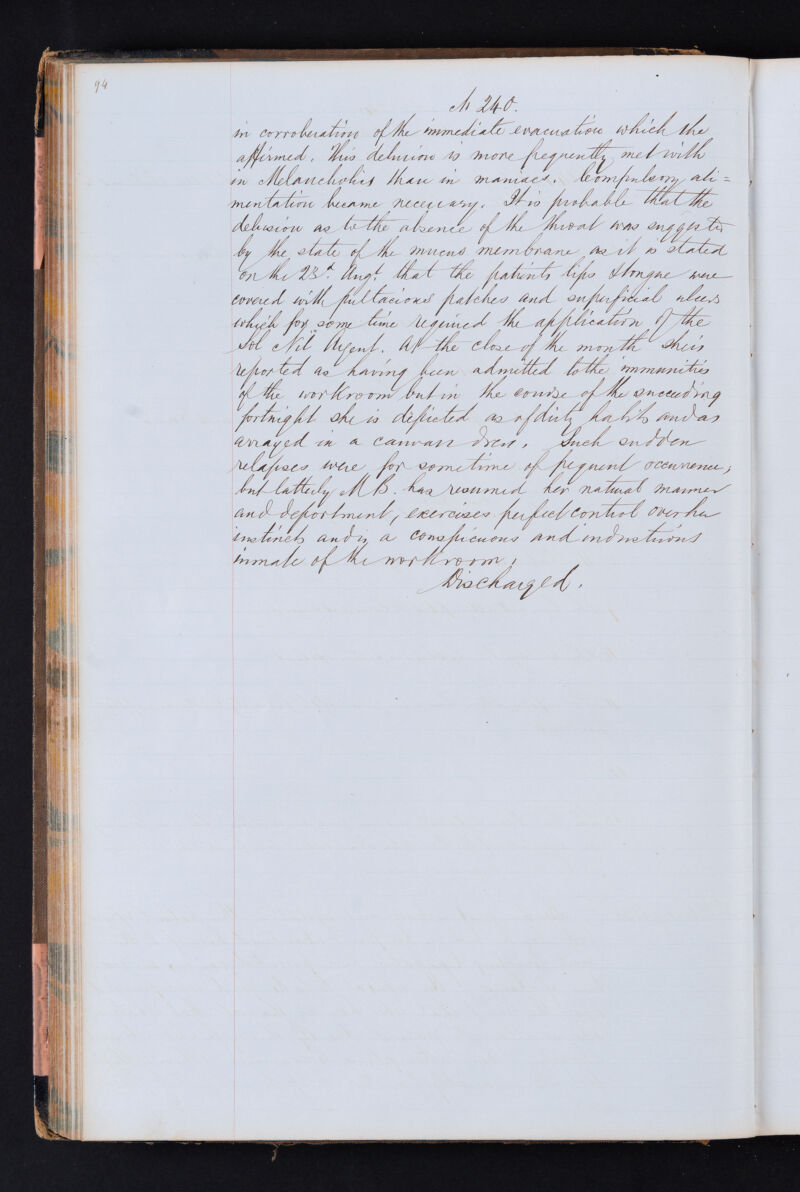 94
N 240.
in corroboration of the immediate evacuation which she
affirmed. This delusion is more frequently met with
in Melancholics than in maniacs. Compulsory ali=
mentation became necessary. It is probable that the
delusion as to the absence of the throat was suggested
by the state of the mucus membrane as it is stated
on the 23d. Augt that the patients lips & tongue were
covered with pultacious patches and superficial ulcers
which for some time required the application of the
Sol Nit Argent. At the close of the month she is
reported as having been admitted to the immunities
of the workroom but in the course of the succeeding
fortnight she is depicted as of dirty habits and as
arrayed in a canvass dress. Such sudden
relapses were for sometime of frequent occurrence,
but latterly M B. has resumed her natural manner
and deportment, exercises perfect control over her
instincts and is a conspicuous and industrious
inmate of the workroom.
Discharged.